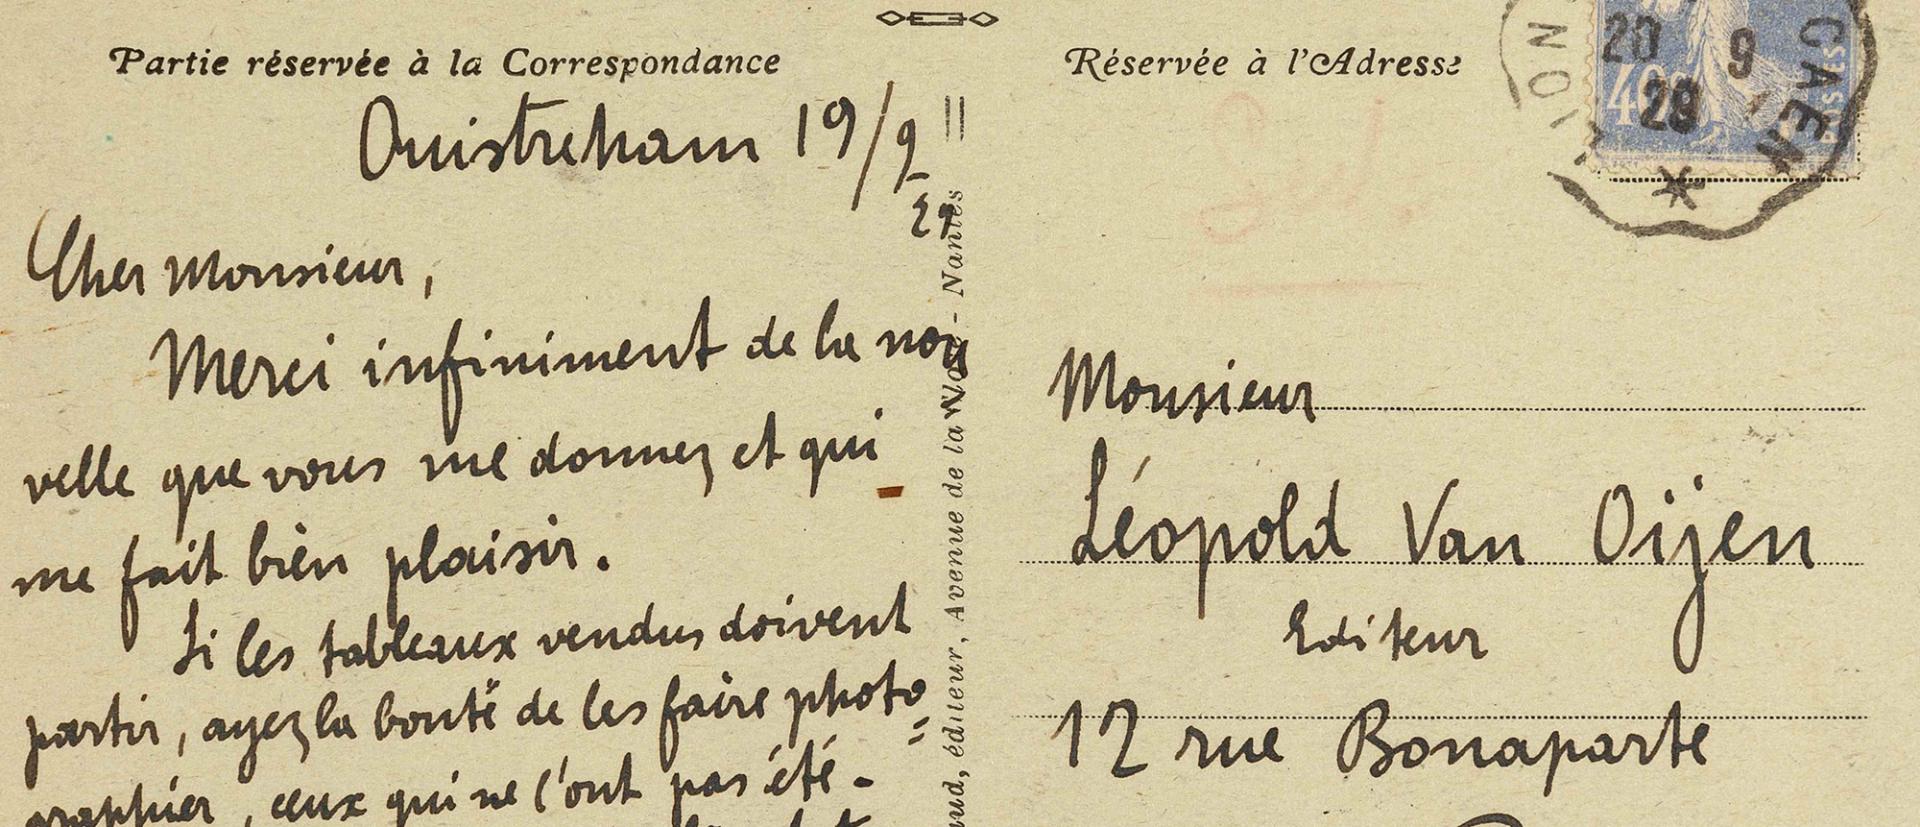 Partie réservée à la Correspondance
Ouistreham 19/9
Cher Monsieur,
Merci infiniment de la nou
velle que vous me donnez et qui
me fait bien plaisir.
Si les tableaux vendus doivent
partir, ayez la bonté de les faire photo=
graphier, ceux qui ne l'ont pas été-
éditeur, Avenue de la - Nantes
Réservée à l'Adresse
20 9
28
40
CAEN
Monsieur
Léopold Van Oijen
Editeur
12 rue Bonaparte